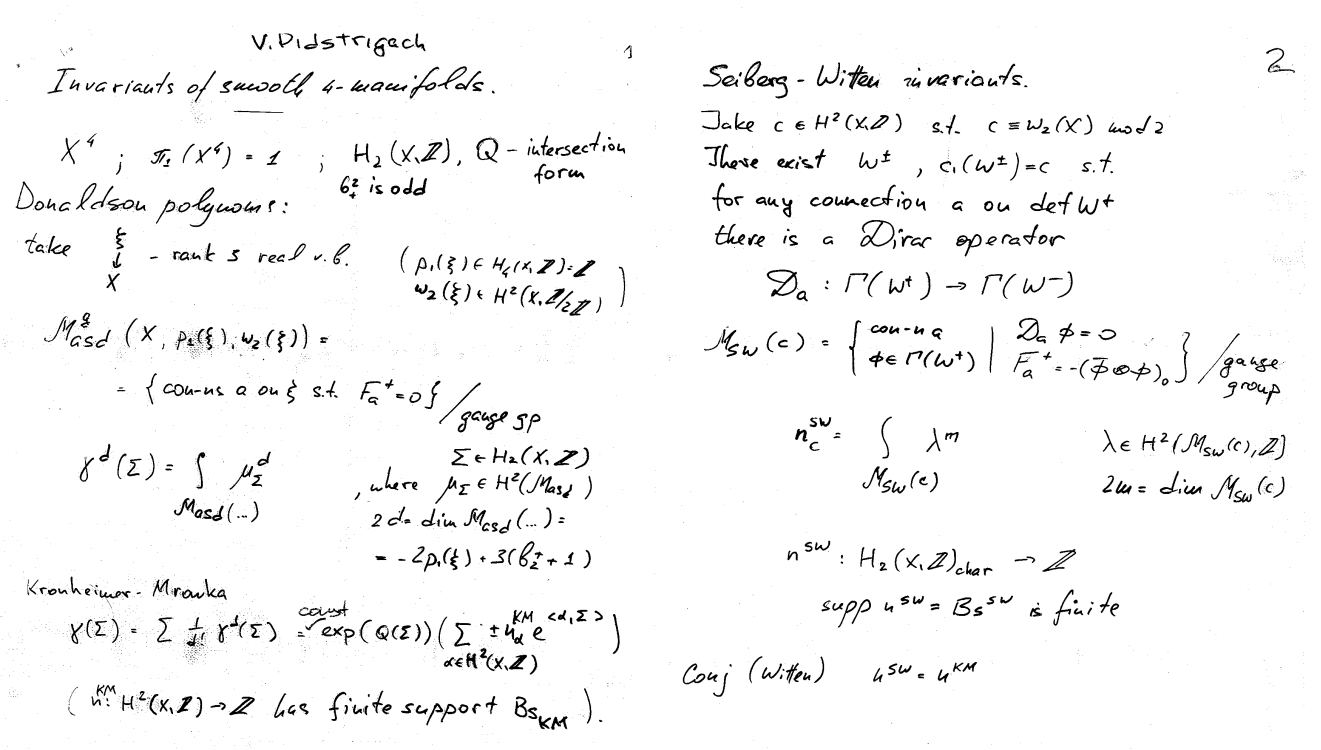 V. Pidstrigach
1
Invariants of smooth 4-manifolds.
X⁴ ; π₁(X⁴) = 1 ; H₂(X,ℤ), Q - intersection form
b₊² is odd
Donaldson polynoms:
take ξ ↓ X - rank 3 real v.b. ( p₁(ξ) ∈ H₄(X,ℤ)=ℤ
w₂(ξ) ∈ H²(X,ℤ/2ℤ) )
ℳ^g_asd (X, p₁(ξ), w₂(ξ)) =
= { con-ns a on ξ s.t. F_a⁺ = 0 } / gauge gp
γ^d(Σ) = ∫_{ℳasd(...)} μ_Σ^d , where Σ ∈ H₂(X,ℤ)
μ_Σ ∈ H²(ℳasd)
2d = dim ℳasd(...) =
= -2p₁(ξ) + 3(b₂⁺ + 1)
Kronheimer - Mrowka
γ(Σ) = Σ 1/d! γ^d(Σ) = const exp(Q(Σ)) ( Σ_{α∈H²(X,ℤ)} ± n_α^{KM} e^{<α,Σ>} )
( n^{KM}: H²(X,ℤ) → ℤ has finite support Bs_KM ).
2
Seiberg - Witten invariants.
Take c ∈ H²(X,ℤ) s.t. c ≡ w₂(X) mod 2
There exist W^± , c₁(W^±) = c s.t.
for any connection a on det W⁺
there is a Dirac operator
𝒟_a : Γ(W⁺) → Γ(W⁻)
ℳ_SW(c) = { con-n a
ϕ ∈ Γ(W⁺) | 𝒟_a ϕ = 0
F_a⁺ = -(ϕ̄ ⊗ ϕ)₀ } / gauge group
n_c^{SW} = ∫_{ℳ_SW(c)} λ^m λ ∈ H²(ℳ_SW(c), ℤ]
2m = dim ℳ_SW(c)
n^{SW} : H₂(X,ℤ)_char → ℤ
supp n^{SW} = Bs^{SW} is finite
Conj (Witten) n^{SW} = n^{KM}